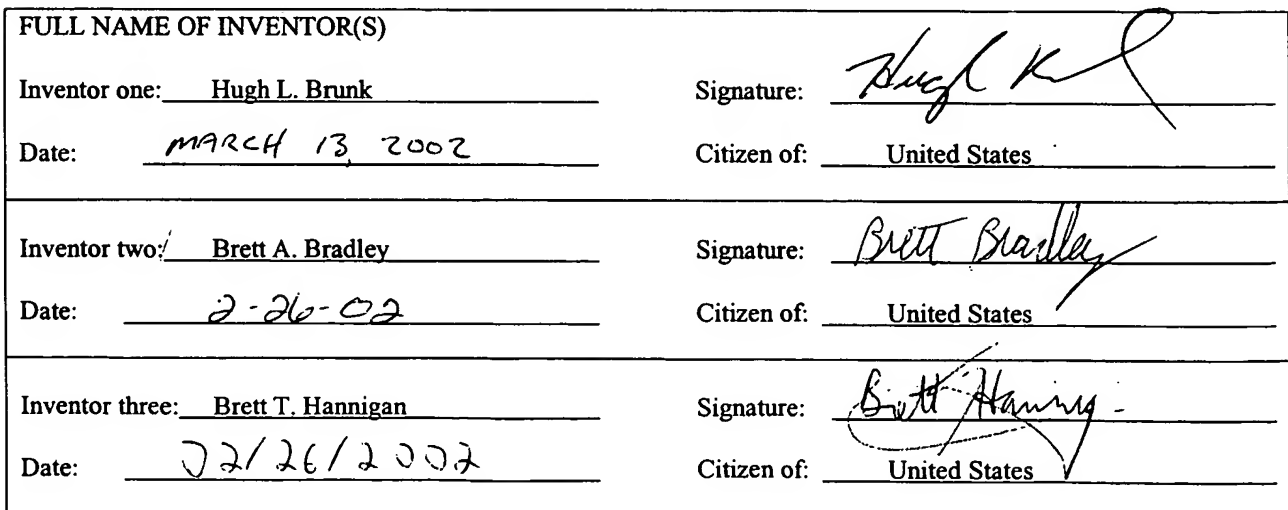 FULL NAME OF INVENTOR(S)
Inventor one: Hugh L. Brunk Signature: Hugh
Date: MARCH 13 2002 Citizen of: United States
Inventor two: Brett A. Bradley Signature: Brett Bradley
Date: 2-26-02 Citizen of: United States
Inventor three: Brett T. Hannigan Signature: Brett
Date: 02/26/2002 Citizen of: United States